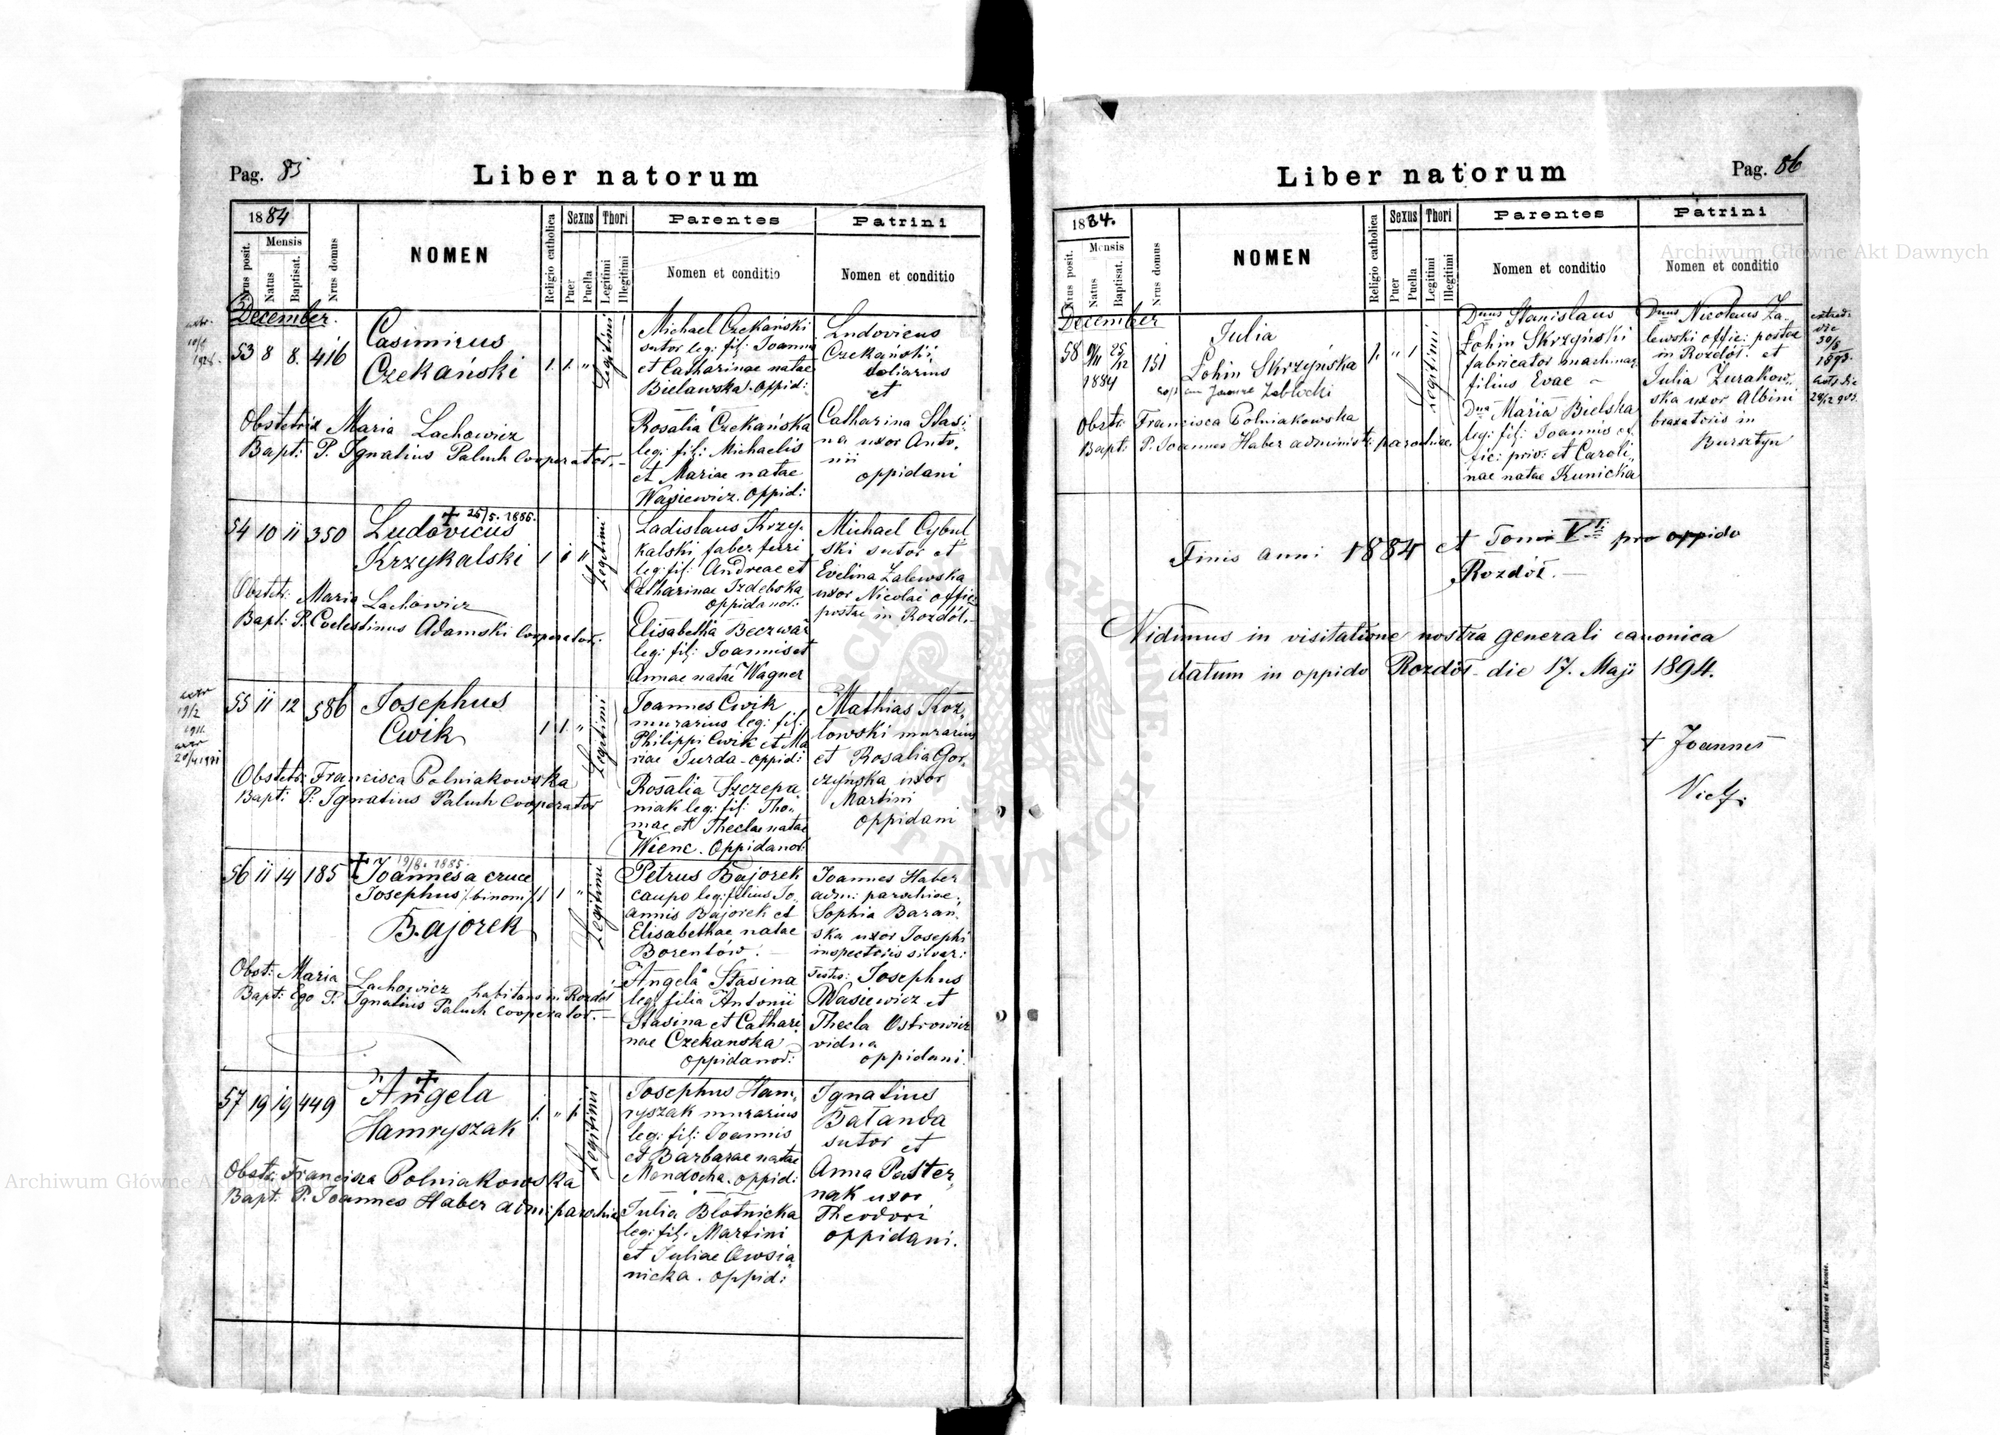 Pag. 85
Liber natorum
1884
Nrus posit.
Mensis
Natus
Baptisat.
Nrus domus
NOMEN
Religio catholica
Sexus
Puer
Puella
Thori
Legitimi
Illegitimi
Parentes
Nomen et conditio
Patrini
Nomen et conditio
December.
53 8 8. 416
Casimirus
Czekański
1. 1. "
Legitimi
Michael Czekański
sutor leg: fil: Joannis
et Catharinae natae
Bielawska. oppid:
Rosalia Czekańska
leg: fil: Michaelis
et Mariae natae
Wasiewicz. oppid:
Ludovicus
Czekański
et
Catharina Stasi
na uxor Anto
nii
oppidani
Obstetrix Maria Lachowicz
Bapt: P. Ignatius Paluch Cooperator.
54 10 11 350
+ 25/5. 1885.
Ludovicus
Krzykalski
1 1 "
Legitimi
Ladislaus Krzy
kalski faber ferri
leg: fil: Andreae et
Catharinae Izdebska
oppidanor:
Elisabetha Beczwár
leg: fil: Joannis et
Annae natae Wagner
Michael Cybul
ski sutor et
Evelina Zalewska
uxor Nicolai offic:
postae in Rozdół.
Obstetr: Maria Lachowicz
Bapt: P. Coelestinus Adamski Cooperator.
55 11 12 586
Josephus
Cwik
1 1 "
Legitimi
Joannes Cwik
murarius leg: fil:
Philippi Cwik et Ma
riae Jurda - oppid:
Rosalia Szczepa
niak leg: fil: Tho
mae et Theclae natae
Wienc. Oppidanor:
Mathias Koz
łowski murarius
et Rosalia Gor
czyńska uxor
Martini
oppidani
Obstetr: Francisca Polniakowska
Bapt: P. Ignatius Paluch Cooperator
56 11 14 185
+ 19/8. 1885.
Joannes a cruce
Josephus /: binom :/
Bajorek
1 1 "
Legitimi
Petrus Bajorek
caupo leg: filius Jo
annis Bajorek et
Elisabethae natae
Borentów.
Angela Stasina
leg: filia Antonii
Stasina et Cathari
nae Czekańska
oppidanor:
Joannes Haber
adm: parochiae,
Sophia Baran
ska uxor Josephi
inspectoris silvar:
Testes: Josephus
Wasiewicz et
Thecla Ostrowicz
vidua
oppidani.
Obst: Maria Lachowicz habitans in Rozdół
Bapt: Ego P. Ignatius Paluch Cooperator.
57 19 19 449
+
Angela
Hamryszak
1. " 1.
Legitimi
Josephus Ham
ryszak murarius
leg: fil: Joannis
et Barbarae natae
Mondocha. oppid:
Julia Błotnicka
leg: fil: Martini
et Juliae Owsia
nicka. oppid:
Ignatius
Bałanda
sutor et
Anna Paster
nak uxor
Theodori
oppidani.
Obstetr: Francisca Polniakowska
Bapt: P. Joannes Haber adm: parochiae
Liber natorum
Pag. 86
1884.
Nrus posit.
Mensis
Natus
Baptisat.
Nrus domus
NOMEN
Religio catholica
Sexus
Puer
Puella
Thori
Legitimi
Illegitimi
Parentes
Nomen et conditio
Patrini
Nomen et conditio
December
58 9/11 25/12 151
1884
Julia
Łohin Skrzyńska
1. " 1
Legitimi
Dnus Stanislaus
Łohin Skrzyński
fabricator machinar
filius Evae
Dna Maria Bielska
leg: fil: Joannis of
fic: priv: et Caroli
nae natae Kunicka
Dnus Nicolaus Za
lewski offic: postae
in Rozdół. et
Julia Żurakow
ska uxor Albini
braxatoris in
Bursztyn
Obstr: Francisca Polniakowska
Bapt: P. Joannes Haber administ: parochiae.
Finis anni 1884 et Tomi V pro oppido
Rozdół.
Vidimus in visitatione nostra generali canonica
datum in oppido Rozdół die 17. Maji 1894.
+ Joannes
Archiwum Główne Akt Dawnych
Archiwum Główne Akt Dawnych